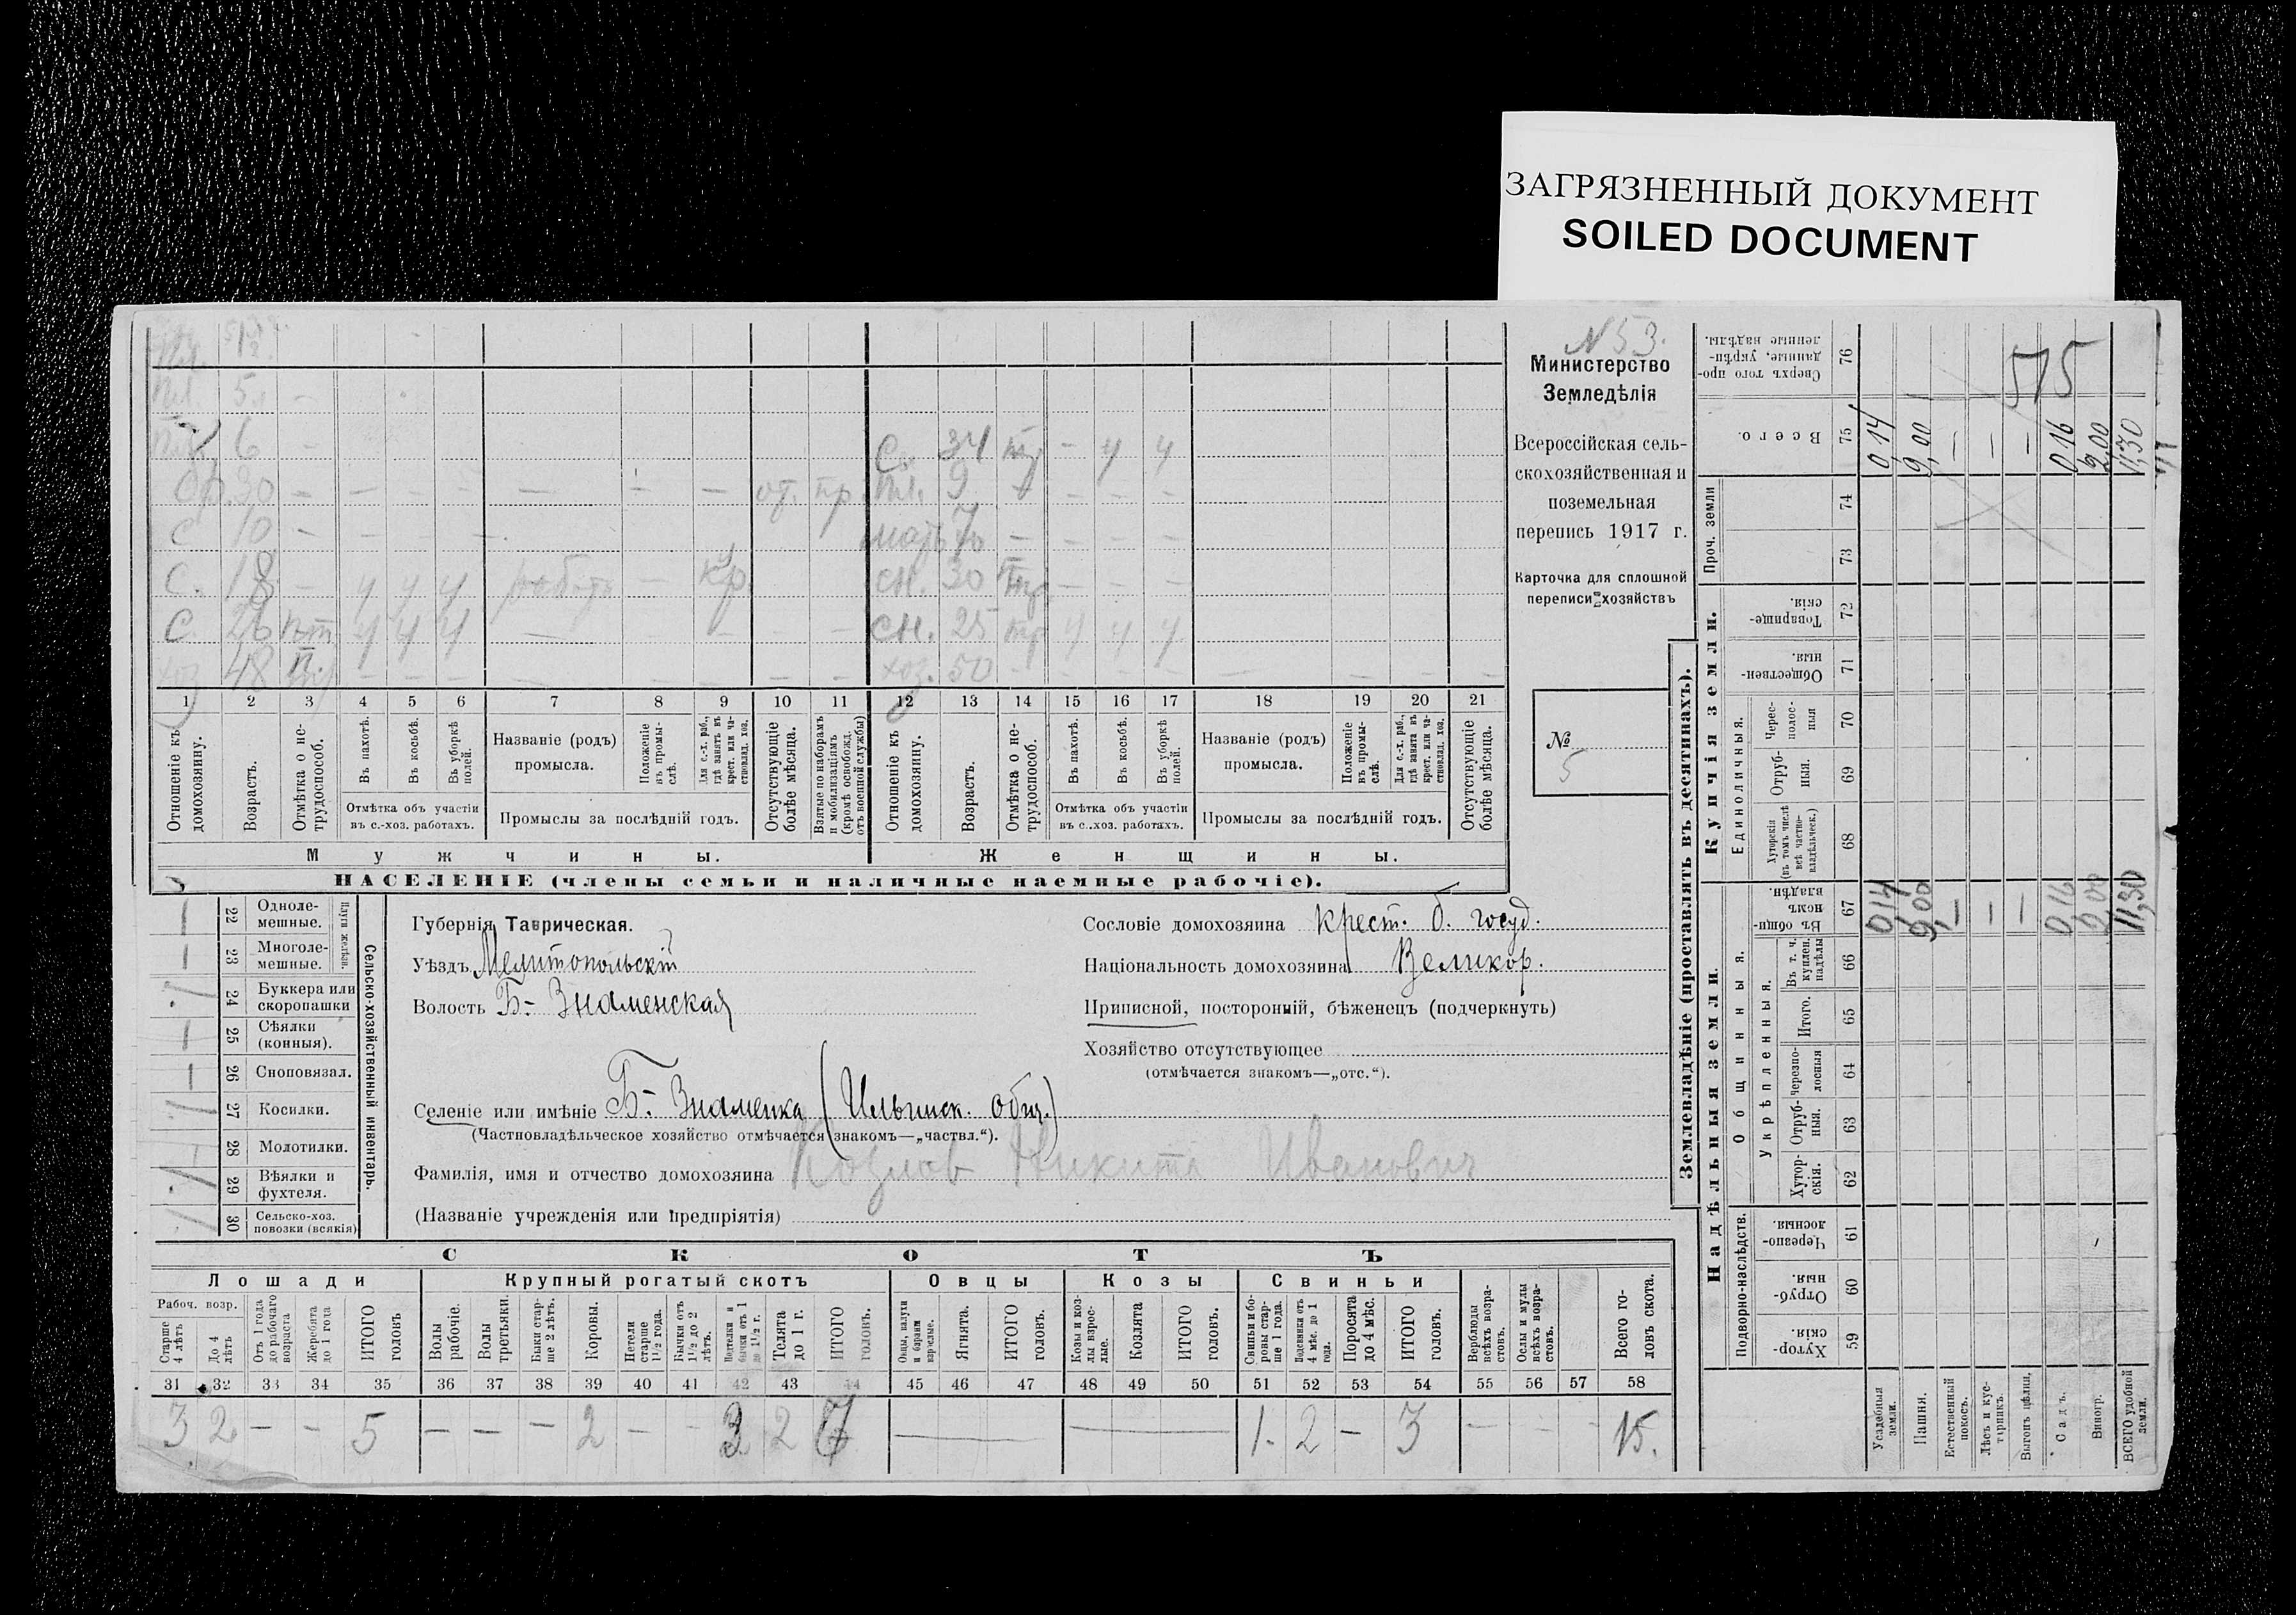 ЗАГРЯЗНЕННЫЙ ДОКУМЕНТ
SOILED DOCUMENT
N 53.
Министерство
Земледѣлія
Всероссійская сель-
скохозяйственная и
поземельная
перепись 1917 г.
Карточка для сплошной
переписи хозяйствъ
№
5
Пл. 5 –
6 –
С. 34 – ч ч
30 – – – – – – – от. пр. пл. 9 – – – –
С 10 – – – – мать 76 – – – –
С. 18 – ч ч ч кр. сн. 30 – – –
С 26 ч ч ч – сн. 25 ч ч ч
хоз 48 – – – хоз. 50 – – – –
1 2 3 4 5 6 7 8 9 10 11 12 13 14 15 16 17 18 19 20 21
Отношеніе къ домохозяину.
Возрастъ.
Отмѣтка о не-трудоспособ.
Въ пахотѣ.
Въ косьбѣ.
Въ уборкѣ полей.
Отмѣтка объ участіи
въ с.-хоз. работахъ.
Названіе (родъ)
промысла.
Положеніе въ промы-слѣ.
Для с.-х. раб., гдѣ занятъ въ крест. или ча-ствовлад. хоз.
Промыслы за послѣдній годъ.
Отсутствующіе болѣе мѣсяца.
Взятые по наборамъ и мобилизаціямъ (кромѣ освобожд. отъ военной службы)
Отношеніе къ домохозяину.
Возрастъ.
Отмѣтка о не-трудоспособ.
Въ пахотѣ.
Въ косьбѣ.
Въ уборкѣ полей.
Отмѣтка объ участіи
въ с.-хоз. работахъ.
Названіе (родъ)
промысла.
Положеніе въ промы-слѣ.
Для с.-х. раб., гдѣ занята въ крест. или ча-ствовлад. хоз.
Промыслы за послѣдній годъ.
Отсутствующіе болѣе мѣсяца.
Мужчины. Женщины.
НАСЕЛЕНІЕ (члены семьи и наличные наемные рабочіе).
Сельско-хозяйственный инвентарь.
Плуги желѣзн.
22 Одноле-мешные.
23 Многоле-мешные.
24 Буккера или скоропашки
25 Сѣялки (конныя).
26 Сноповязал.
27 Косилки.
28 Молотилки.
29 Вѣялки и фухтеля.
30 Сельско-хоз. повозки (всякія)
Губернія Таврическая.
Уѣздъ Мелитопольскій
Волость Б.- Знаменская
Селеніе или имѣніе Б.- Знаменка (Ильинск. общ.)
(Частновладѣльческое хозяйство отмѣчается знакомъ—„частвл.“).
Фамилія, имя и отчество домохозяина Козлов Никита Иванович
(Названіе учрежденія или предпріятія)
Сословіе домохозяина крест. б. госуд.
Національность домохозяина Великор.
Приписной, посторонній, бѣженецъ (подчеркнуть)
Хозяйство отсутствующее
(отмѣчается знакомъ—„отс.“).
СКОТЪ
Лошади Крупный рогатый скотъ Овцы Козы Свиньи
Рабоч. возр.
Старше 4 лѣтъ
До 4 лѣтъ
Отъ 1 года до рабочаго возраста
Жеребята до 1 года
ИТОГО головъ
Волы рабочіе.
Волы третьяки.
Быки стар-ше 2 лѣтъ.
Коровы.
Нетели старше 1½ года.
Бычки отъ 1½ до 2 лѣтъ.
Подтелки и бычки отъ 1 до 1½ г.
Телята до 1 г.
ИТОГО головъ.
Овцы, валухи и бараны взрослые.
Ягнята.
ИТОГО головъ.
Козы и коз-лы взрос-лые.
Козлята
ИТОГО головъ.
Свиньи и бо-ровы стар-ше 1 года.
Подсвинки отъ 4 мѣс. до 1 года.
Поросята до 4 мѣс.
ИТОГО головъ.
Верблюды всѣхъ возра-стовъ.
Ослы и мулы всѣхъ возра-стовъ.
Всего го-ловъ скота.
31 32 33 34 35 36 37 38 39 40 41 42 43 44 45 46 47 48 49 50 51 52 53 54 55 56 57 58
3 2 – – 5 – – – 2 – – 3 2 7 — — 1. 2 – 3 – – – 15.
Землевладѣніе (проставлять въ десятинахъ).
Надѣльныя земли. Купчія земли.
Подворно-наслѣдств.
Общинныя.
Укрѣпленныя.
Единоличныя.
Проч. земли
59 Хутор-скія.
60 Отруб-ныя.
61 Черезпо-лосныя.
62 Хутор-скія.
63 Отруб-ныя.
64 Черезпо-лосныя
65 Итого.
66 Въ т. ч. куплен. надѣлы
67 Въ общин-номъ владѣн.
68 Хуторскія (въ томъ числѣ всѣ частно-владѣльческ.)
69 Отруб-ныя.
70 Черес-полос-ныя
71 Обществен-ныя.
72 Товарище-скія.
73
74
75 Всего.
76 Сверхъ того про-данные, укрѣп-ленные надѣлы.
Усадебныя земли. 0,14 0,14
Пашня. 9,00 9,00
Естественный покосъ. – –
Лѣсъ и кус-тарникъ. – –
Выгонъ цѣлин. – –
Садъ. 0,16 0,16
Виногр. 2,00 2,00
ВСЕГО удобной земли. 11,30 11,30
515